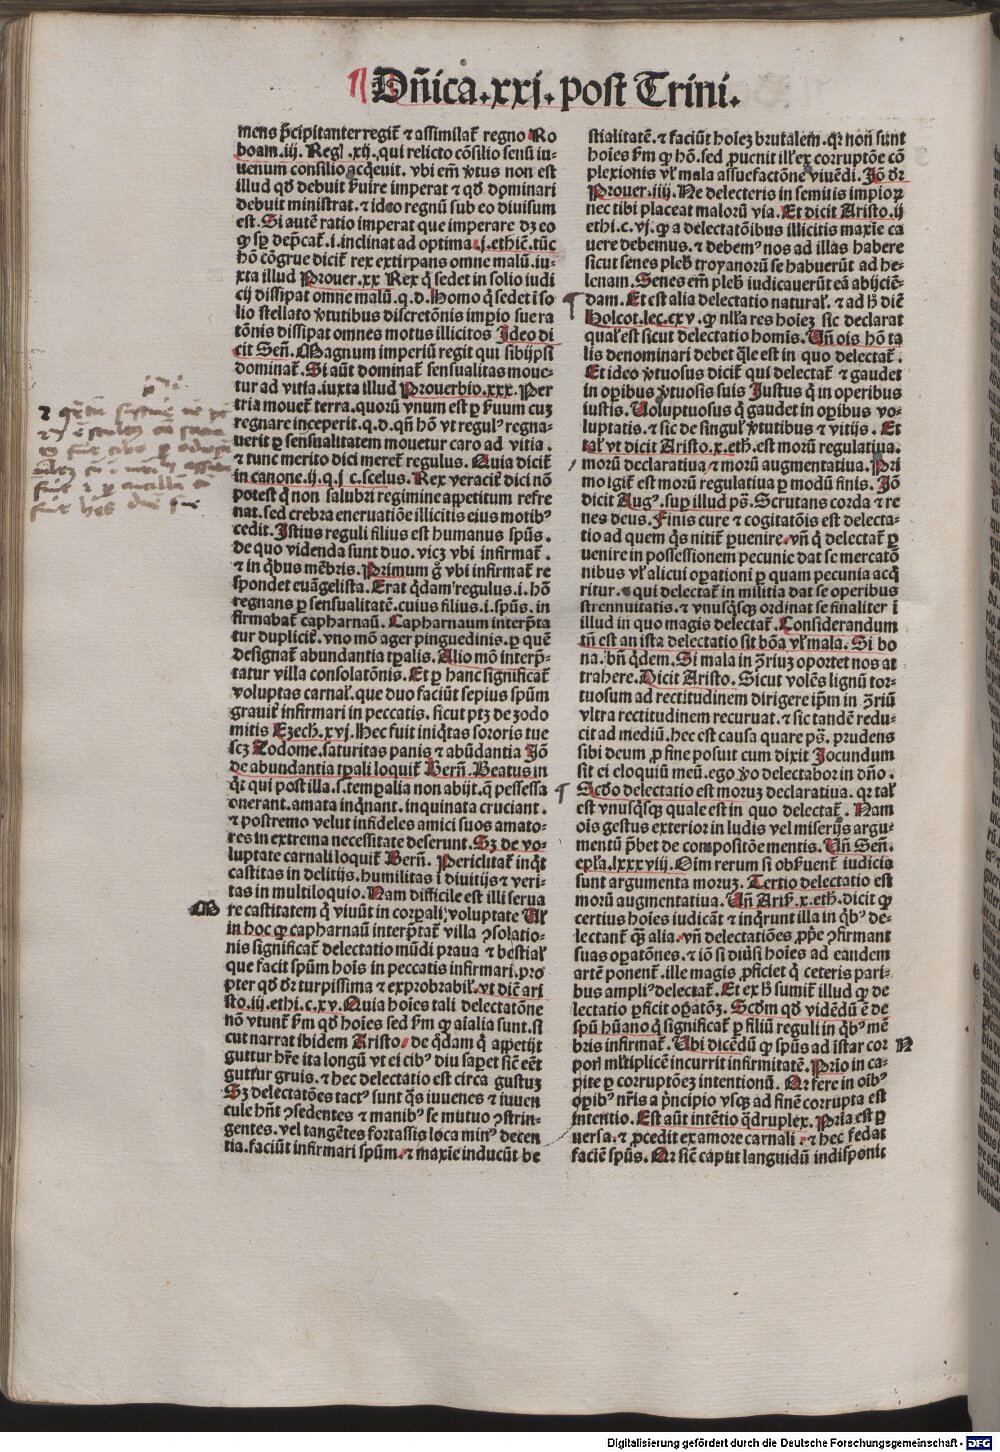 Dñica.xxj.post Trini.
mens p̃cipitanter regit̃ ⁊ assimilat̃ regno Ro
boam.iij. Regl .xij., qui relicto cõsilio senũ iu⸗
uenum consilio acq̃euit. vbi em̃ v̾tus non est
illud qđ debuit s̃uire imperat ⁊ qđ dominari
debuit ministrat. ⁊ ideo regnũ sub eo diuisum
est. Si autẽ ratio imperat que imperare dꝫ eo
ꝙ sꝑ dep̃cat̃ .i. inclinat ad optima .j. ethic̃. tũc
hõ cõgrue dicit̃ rex extirpans omne malũ. iu⸗
xta illud Prouer.xx Rex q̃ sedet in solio iudi
cij dissipat omne malũ. q.d. Homo q̃ sedet ĩ so
lio stellato v̾tutibus discretõnis impio sue ra
tõnis dissipat omnes motus illicitos Ideo di
cit Señ. Magnum imperiũ regit qui sibijpsi
dominat̃. Si aũt dominat̃ sensualitas moue⸗
tur ad vitia. iuxta illud Prouerbio.xxx. Per
tria mouet̃ terra. quorũ vnum est ꝑ s̃uum cuꝫ
regnare inceperit. q.d. qñ hõ vt regulꝰ regna⸗
uerit ꝑ sensualitatem mouetur caro ad vitia .
⁊ tunc merito dici meret̃ regulus. Quia dicit̃
in canone .ij. q. j c. scelus. Rex veracit̃ dici nõ
potest q̃ non salubri regimine appetitum refre
nat. sed crebra eneruatiõe illicitis eius motibꝰ
cedit. Istius reguli filius est humanus spũs.
de quo videnda sunt duo. vicꝫ vbi infirmat̃ .
⁊ in q̃bus mẽbris. Primum g̃ vbi infirmat̃ re
spondet euãgelista. Erat q̃dam regulus .i. hõ
regnans ꝑ sensualitatẽ. cuius filius .i. spũs. in
firmabat̃ capharnaũ. Capharnaum interp̃ta
tur duplicit̃. vno mõ ager pinguedinis. ꝑ quẽ
designat̃ abundantia tp̃alis. Alio mõ interp̃⸗
tatur villa consolatõnis. Et ꝑ hanc significat̃
voluptas carnal̃. que duo faciũt sepius spũm
grauit̃ infirmari in peccatis. sicut ptꝫ de ꝫodo
mitis Eꝫech̃.xvj. Hec fuit iniq̃tas sororis tue
scꝫ Zodome. saturitas panis ⁊ abũdantia Iõ
de abundantia tp̃ali loquit̃ Berñ. Beatus in
q̃t qui post illa .s. tempalia non abijt. q̃ pessessa
onerant. amata inq̃nant. inquinata cruciant .
⁊ postremo velut infideles amici suos amato⸗
res in extrema necessitate deserunt. Sꝫ de vo⸗
luptate carnali loquit̃ Berñ. Periclitat̃ inq̃t
castitas in delitijs. humilitas ĩ diuitijs ⁊ veri⸗
tas in multiloquio. Nam difficile est illi serua
M
re castitatem q̃ viuũt in corꝑali, voluptate Ul̃
in hoc ꝙ capharnaũ interp̃tat̃ villa ꝯsolatio⸗
nis significat̃ delectatio mũdi praua ⁊ bestial̃
que facit spũm hoĩs in peccatis infirmari. pro
pter qđ dr̃ turpissima ⁊ exprobrabil̃. vt dic̃ ari
sto. iij. ethi. c. xv. Quia hoĩes tali delectatõne
nõ vtunt̃ s̃m qđ hoĩes sed s̃m ꝙ aĩalia sunt. si
cut narrat ibidem Aristo. de q̃dam q̃ appetijt
guttur hr̃e ita longũ vt ei cibꝰ diu sapet sic̃ eẽt
guttur gruis. ⁊ hec delectatio est circa gustuꝫ
Sꝫ delectatões tactꝰ sunt q̃s iuuenes ⁊ iuuen
cule hñt ꝯsedentes ⁊ manibꝰ se mutuo ꝯstrin⸗
gentes. vel tangẽtes fortassis loca minꝰ decen
tia. faciũt infirmari spũm. ⁊ maxĩe inducũt be
stialitatẽ. ⁊ faciũt hoĩeꝫ brutalem. qꝛ non sunt
hoĩes s̃m ꝙ hõ. sed ꝓuenit ill̃ ex corruptõe cõ
plexionis vl̃ mala assuefactõne viuẽdi. Iõ dr̃
Prouer.iiij. Ne delecteris in semitis impioꝝ
nec tibi placeat malorũ via. Et dicit Aristo. ij
ethi. c. vj. ꝙ a delectatõibus illicitis maxĩe ca
uere debemus. ⁊ debemꝰ nos ad illas habere
sicut senes pleb̃ troyanorũ se habuerũt ad he⸗
lenam. Senes em̃ pleb̃ iudicauerũt eã abijciẽ⸗
dam. Et est alia delectatio natural̃. ⁊ ad h̃ dic̃
Holcot. lec. cxv. ꝙ nlľa res hoĩeꝫ sic declarat
qual̃ est sicut delectatio homĩs. Uñ oĩs hõ ta
lis denominari debet q̃le est in quo delectat̃ .
Et ideo v̾tuosus dicit̃ qui delectat̃ ⁊ gaudet
in oꝑibus v̾tuosis suis Iustus q̃ in operibus
iustis. Uoluptuosus q̃ gaudet in oꝑibus vo⸗
luptatis. ⁊ sic de singul̃ v̾tutibus ⁊ vitijs. Et
tal̃ vt dicit Aristo. x. eth̃. est morũ regulatiua.
morũ declaratiua ⁊ morũ augmentatiua. Pri
mo igit̃ est morũ regulatiua ꝑ modũ finis. Iõ
dicit Augꝰ. suꝑ illud ps̃. Scrutans corda ⁊ re
nes deus. Finis cure ⁊ cogitatõis est delecta⸗
tio ad quem q̃s nitit̃ ꝑuenire. vñ q̃ delectat̃ ꝑ
uenire in possessionem pecunie dat se mercatõ
nibus vl̃ alicui oꝑationi ꝑ quam pecunia acq̃
ritur. qui delectat̃ in militia dat se operibus
strennuitatis. ⁊ vnusq̃sqꝫ ordinat se finaliter ĩ
illud in quo magis delectat̃. Considerandum
tñ est an ista delectatio sit bõa vl̃ mala. Si bo
na. bñ q̃dem. Si mala in ꝯ̃riuꝫ oportet nos at
trahere. Dicit Aristo. Sicut volẽs lignũ tor⸗
tuosum ad rectitudinem dirigere ip̃m in ꝯ̃riũ
vltra rectitudinem recuruat. ⁊ sic tandẽ redu⸗
cit ad mediũ. hec est causa quare ps̃. prudens
sibi deum ꝓ fine posuit cum dixit Iocundum
sit ei eloquiũ meũ. ego v̾o delectabor in dño .
Scđo delectatio est moruꝫ declaratiua. qꝛ tal̃
est vnusq̃sqꝫ quale est in quo delectat̃ . Nam
oĩs gestus exterior in ludis vel miserijs argu⸗
mentũ p̃bet de compositõe mentis. Uñ Señ.
epľa. lxxxviij. Oĩm rerum si obs̃uent̃ iudicia
sunt argumenta moruꝫ. Tertio delectatio est
morũ augmentatiua. Uñ Arist̃. x. eth̃. dicit ꝙ
certius hoĩes iudicãt ⁊ inq̃runt illa in q̃bꝰ de⸗
lectant̃ q̃ꝫ alia. vñ delectatiões ꝓp̃e ꝯfirmant
suas oꝑatões. ⁊ iõ si diũsi hoĩes ad eandem
artẽ ponent̃. ille magis ꝓficiet q̃ ceteris pari⸗
bus ampliꝰ delectat̃. Et ex h̃ sumit̃ illud ꝙ de
lectatio ꝑficit oꝑatõꝫ. Scđm qđ vidẽdũ ẽ de
spũ hũano q̃ significat̃ ꝑ filiũ reguli in q̃bꝰ mẽ
bris infirmat̃. Ubi dicẽdũ ꝙ spũs ad istar cor
N
poris mľtiplicẽ incurrit infirmitatẽ. Prĩo in ca⸗
pite ꝑ corruptõeꝫ intentionũ. Qꝛ fere in oĩbꝰ
oꝑibꝰ nr̃is a p̃ncipio vsqꝫ ad finẽ corrupta est
intentio. Est aũt intẽtio q̃druplex. Prĩa est ꝑ
uersa. ⁊ ꝓcedit ex amore carnali . ⁊ hec fedat
faciẽ spũs. Qꝛ sic̃ caput languidũ indisponit
Digitalisierung gefördert durch die Deutsche Forschungsgemeinschaft - DFG